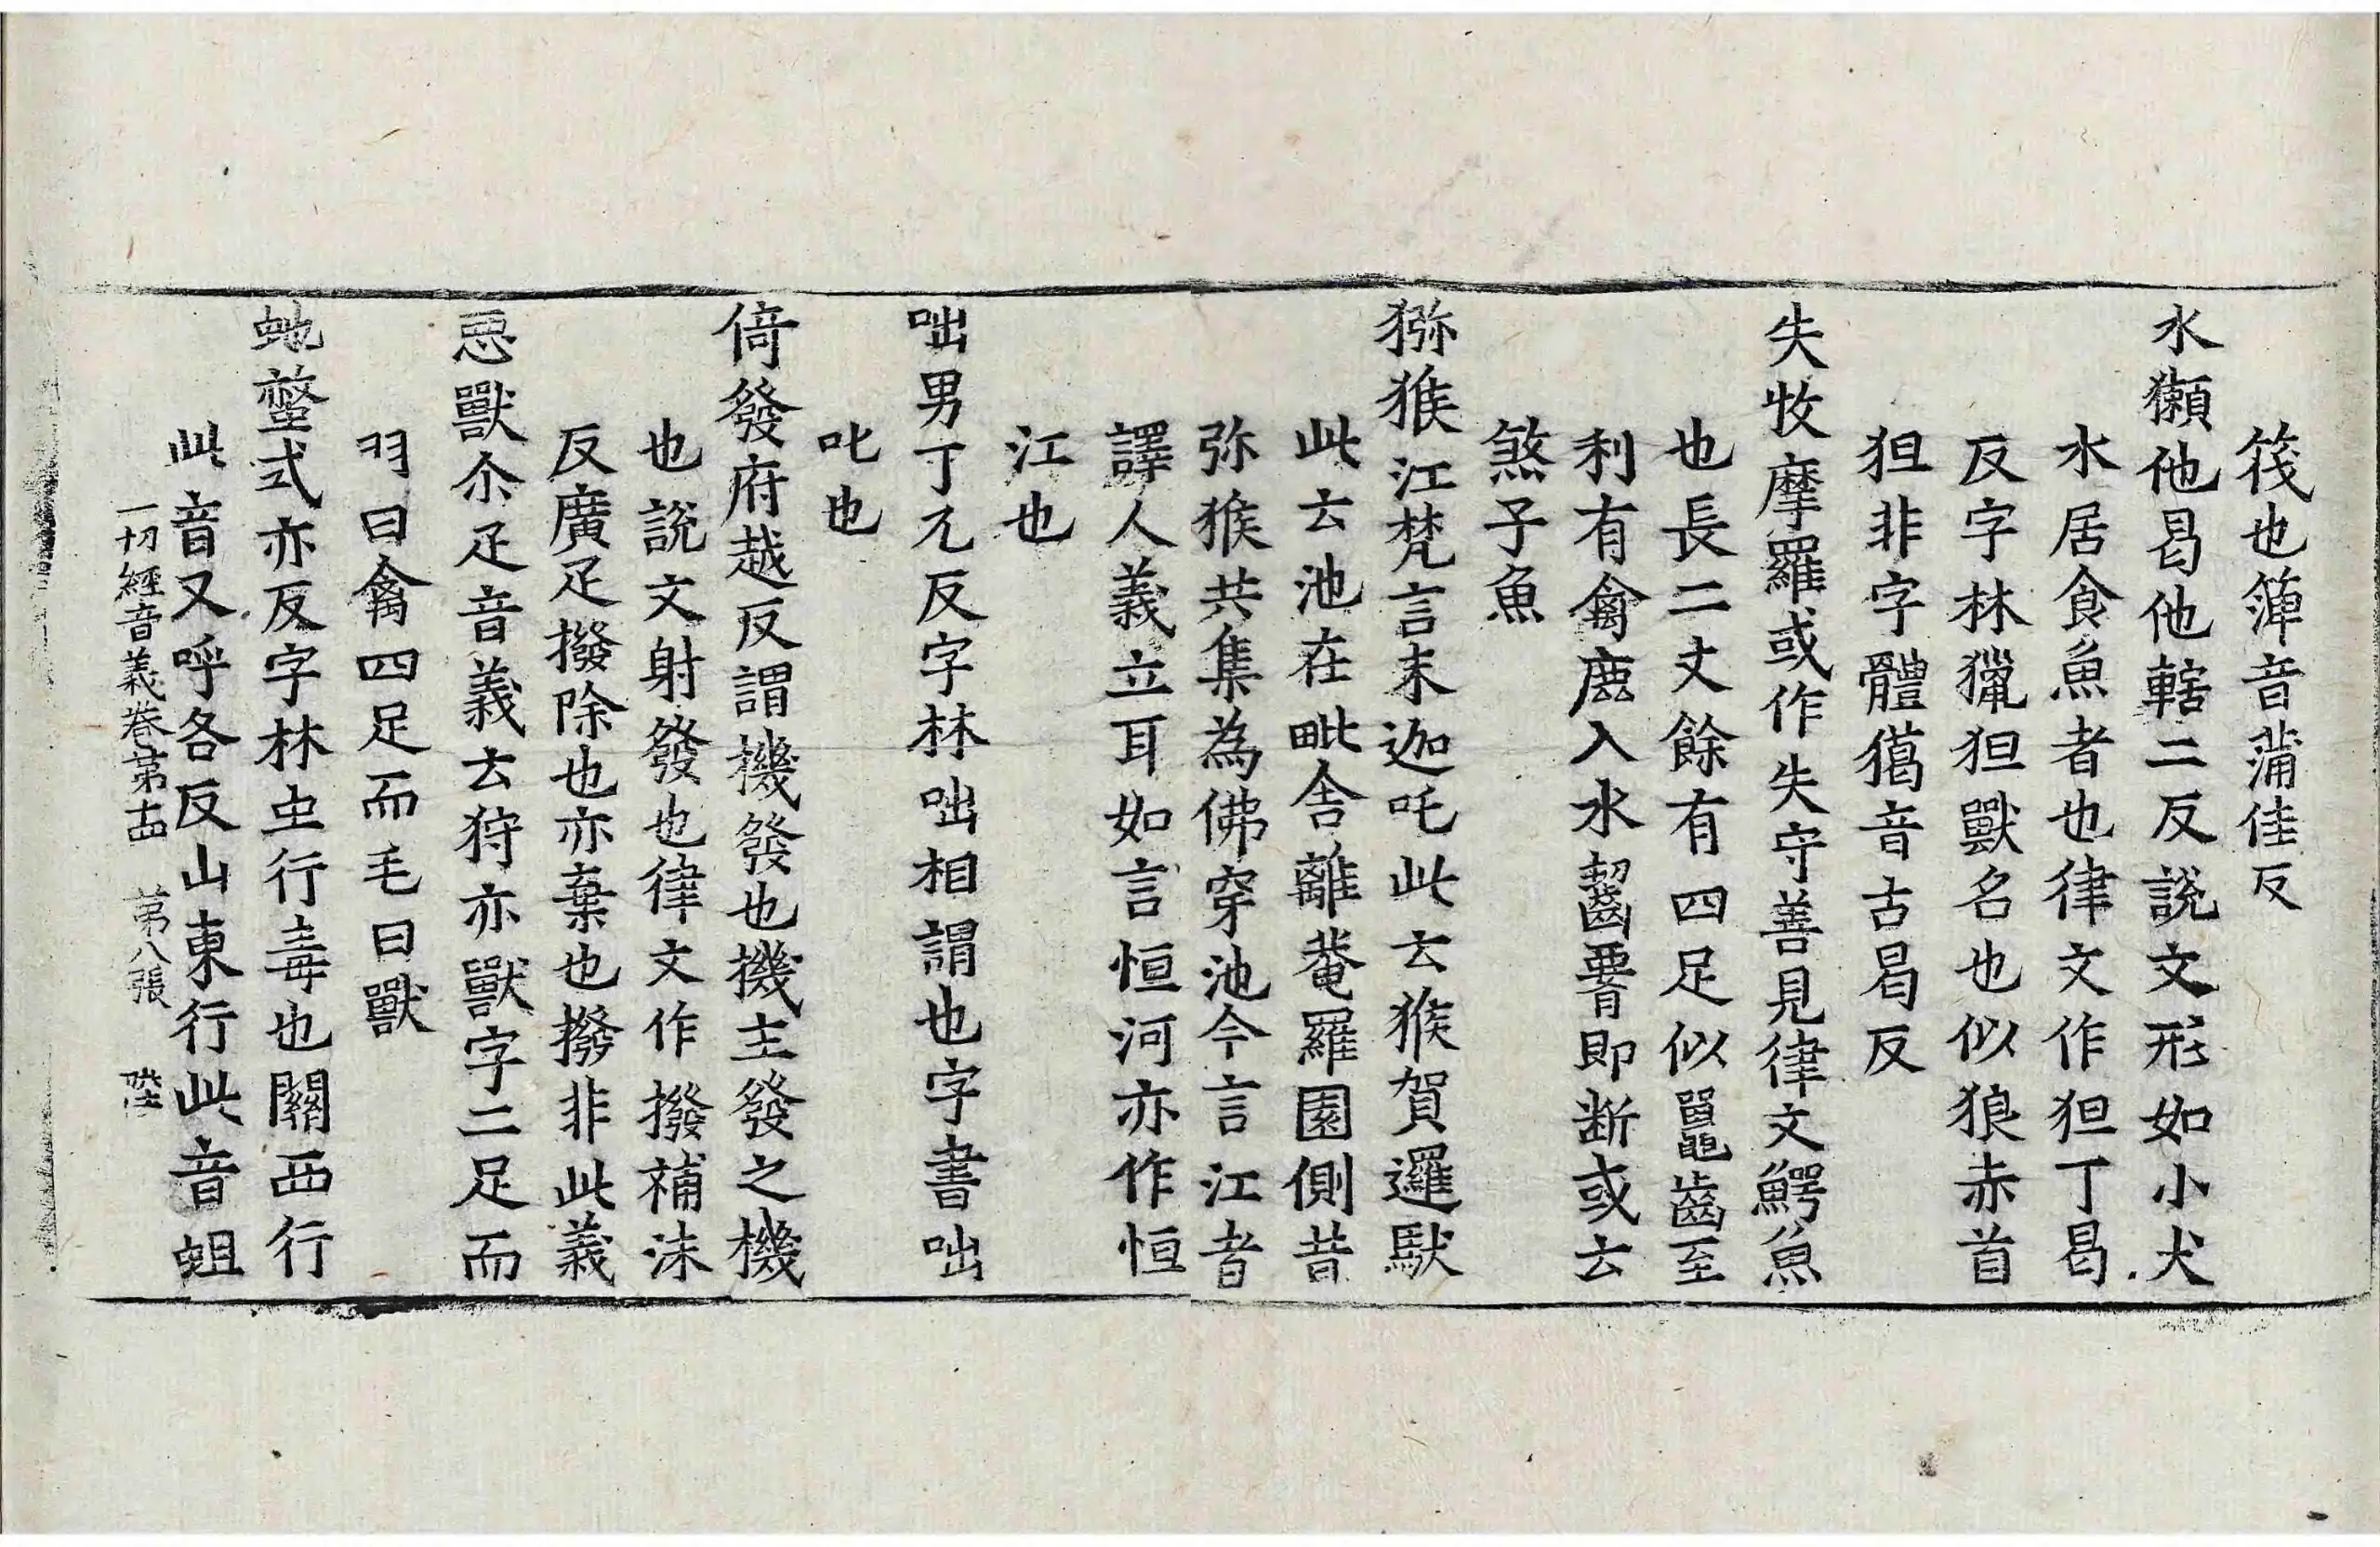 筏也箄音蒲佳反
水獺他曷他轄二反說文形如小犬
水居食魚者也律文作狚丁曷
反字林獵狚獸名也似狼赤首
狚非字體獦音古曷反
失牧摩羅或作失守善見律文鰐魚
也長二丈餘有四足似鼉齒至
利有禽鹿入水齧𦝫即断或云
煞子魚
猕猴江梵言末迦吒此云猴賀邏馱
此云池在毗舍離菴羅園側昔
弥猴共集為佛穿池今言江者
譯人義立耳如言恒河亦作恒
江也
咄男丁兀反字林咄相謂也字書咄
叱也
倚發府越反謂機發也機主發之機
也說文射發也律文作撥補沫
反廣疋撥除也亦棄也撥非此義
惡獸尒疋音義云狩亦獸字二足而
羽曰禽四足而毛曰獸
虵螫式亦反字林虫行毒也關西行
此音又呼各反山東行此音蛆
一切經音義卷第十四 第八張 陛